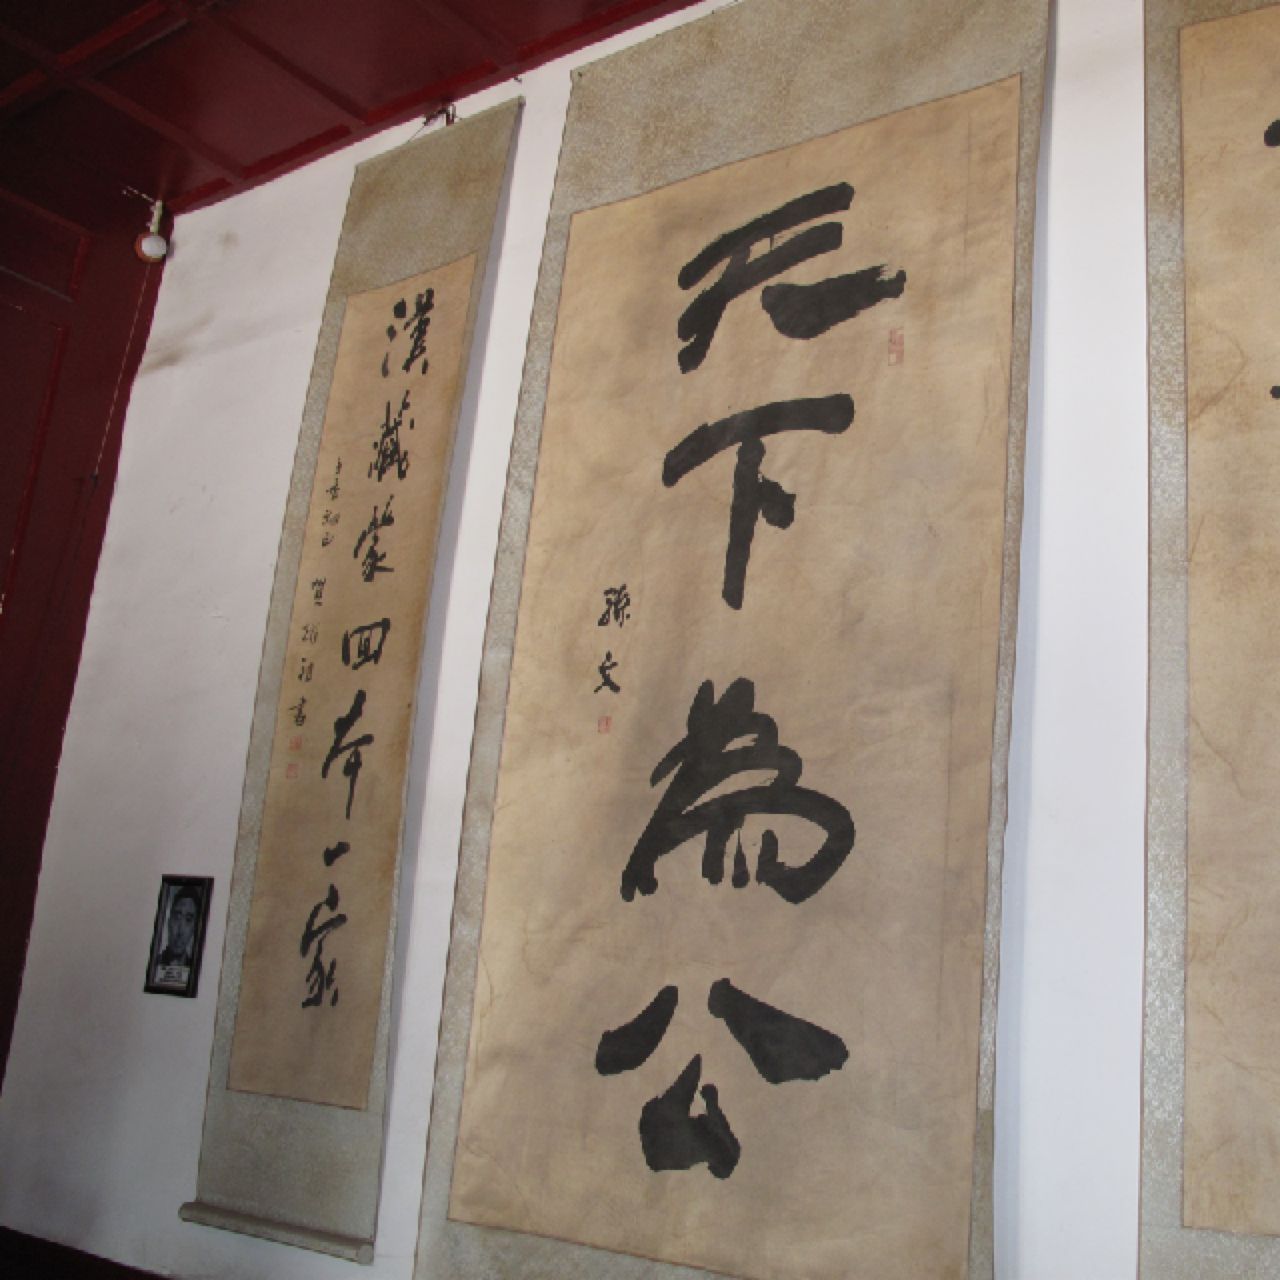 天下為公
孫文
漢藏蒙回本一家
書